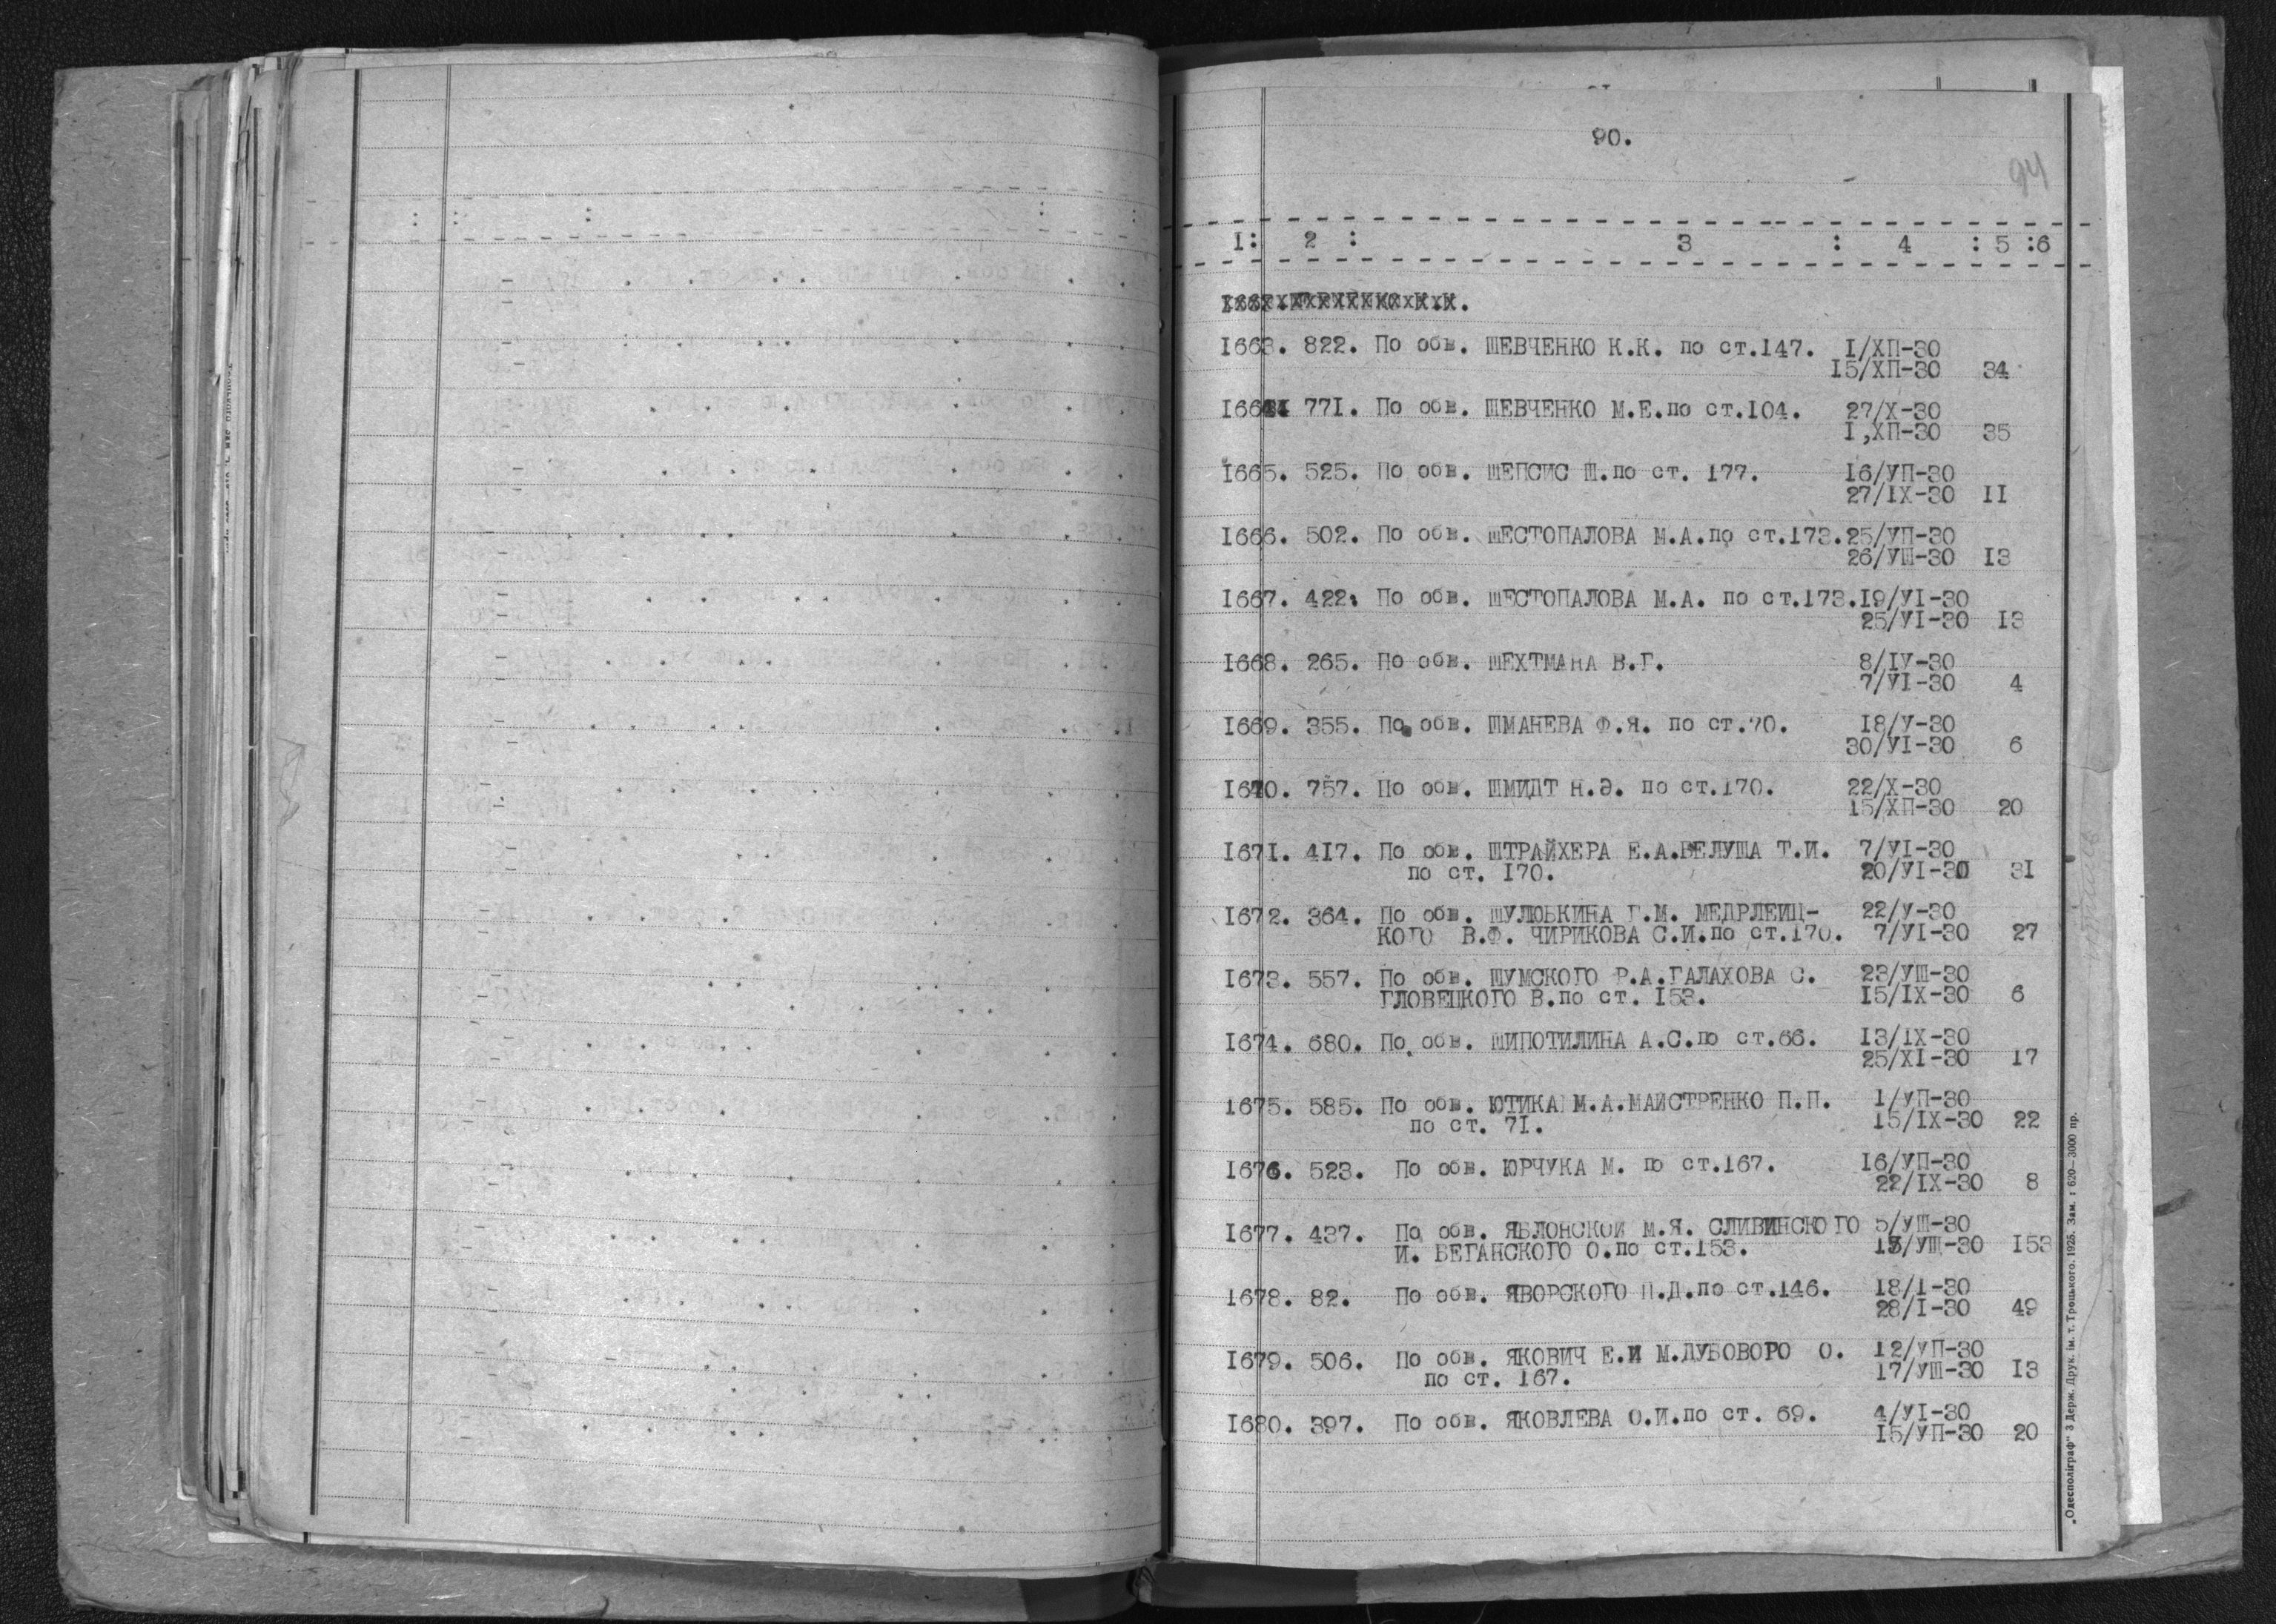 90.
94
1: 2 : 3 : 4 : 5 :6
1663. 822. По обв. ШЕВЧЕНКО К.К. по ст.147. I/ХП-30
15/ХП-30 34
1664 771. По обв. ШЕВЧЕНКО М.Е.по ст.104. 27/Х-30
I,ХП-30 35
1665. 525. По обв. ШЕПСИС Ш.по ст. 177. 16/УП-30
27/IХ-30 II
1666. 502. По обв. ШЕСТОПАЛОВА М.А.по ст.173.25/УП-30
26/УШ-30 13
1667. 422. По обв. ШЕСТОПАЛОВА М.А. по ст.173.19/УI-30
25/УI-30 13
1668. 265. По обв. ШЕХТМАНА В.Г. 8/IУ-30
7/УI-30 4
1669. 355. По обв. ШМАНЕВА Ф.Я. по ст.70. 18/У-30
30/УI-30 6
1670. 757. По обв. ШМИДТ Н.Э. по ст.170. 22/Х-30
15/ХП-30 20
1671. 417. По обв. ШТРАЙХЕРА Е.А.БЕЛУША Т.И. 7/УI-30
по ст. 170. 20/УI-30 31
1672. 364. По обв. ШУЛЮБКИНА Г.М. МЕДРЛЕИЦ- 22/У-30
КОГО В.Ф. ЧИРИКОВА С.И.по ст.170. 7/УI-30 27
1673. 557. По обв. ШУМСКОГО Р.А.ГАЛАХОВА С. 23/УШ-30
ГЛОВЕЦКОГО В.по ст. 153. 15/IХ-30 6
1674. 680. По обв. ШИПОТИЛИНА А.С.по ст.66. 13/IХ-30
25/ХI-30 17
1675. 585. По обв. ЮТИКА М.А.МАЙСТРЕНКО П.П. I/УП-30
по ст. 71. 15/IХ-30 22
1676. 523. По обв. ЮРЧУКА М. по ст.167. 16/УП-30
22/IХ-30 8
1677. 437. По обв. ЯБЛОНСКОЙ М.Я. СЛИВИНСКОГО 5/УШ-30
И. БЕГАНСКОГО О.по ст.153. 13/УШ-30 153
1678. 82. По обв. ЯВОРСКОГО П.Д.по ст.146. 18/I-30
28/I-30 49
1679. 506. По обв. ЯКОВИЧ Е.И М.ДУБОВОГО О. 12/УП-30
по ст. 167. 17/УШ-30 13
1680. 397. По обв. ЯКОВЛЕВА О.И.по ст. 69. 4/УI-30
15/УП-30 20
„Одесполіграф" 3 Держ. Друк. ім. т. Троцького. 1925. Зам. : 620—3000 пр.